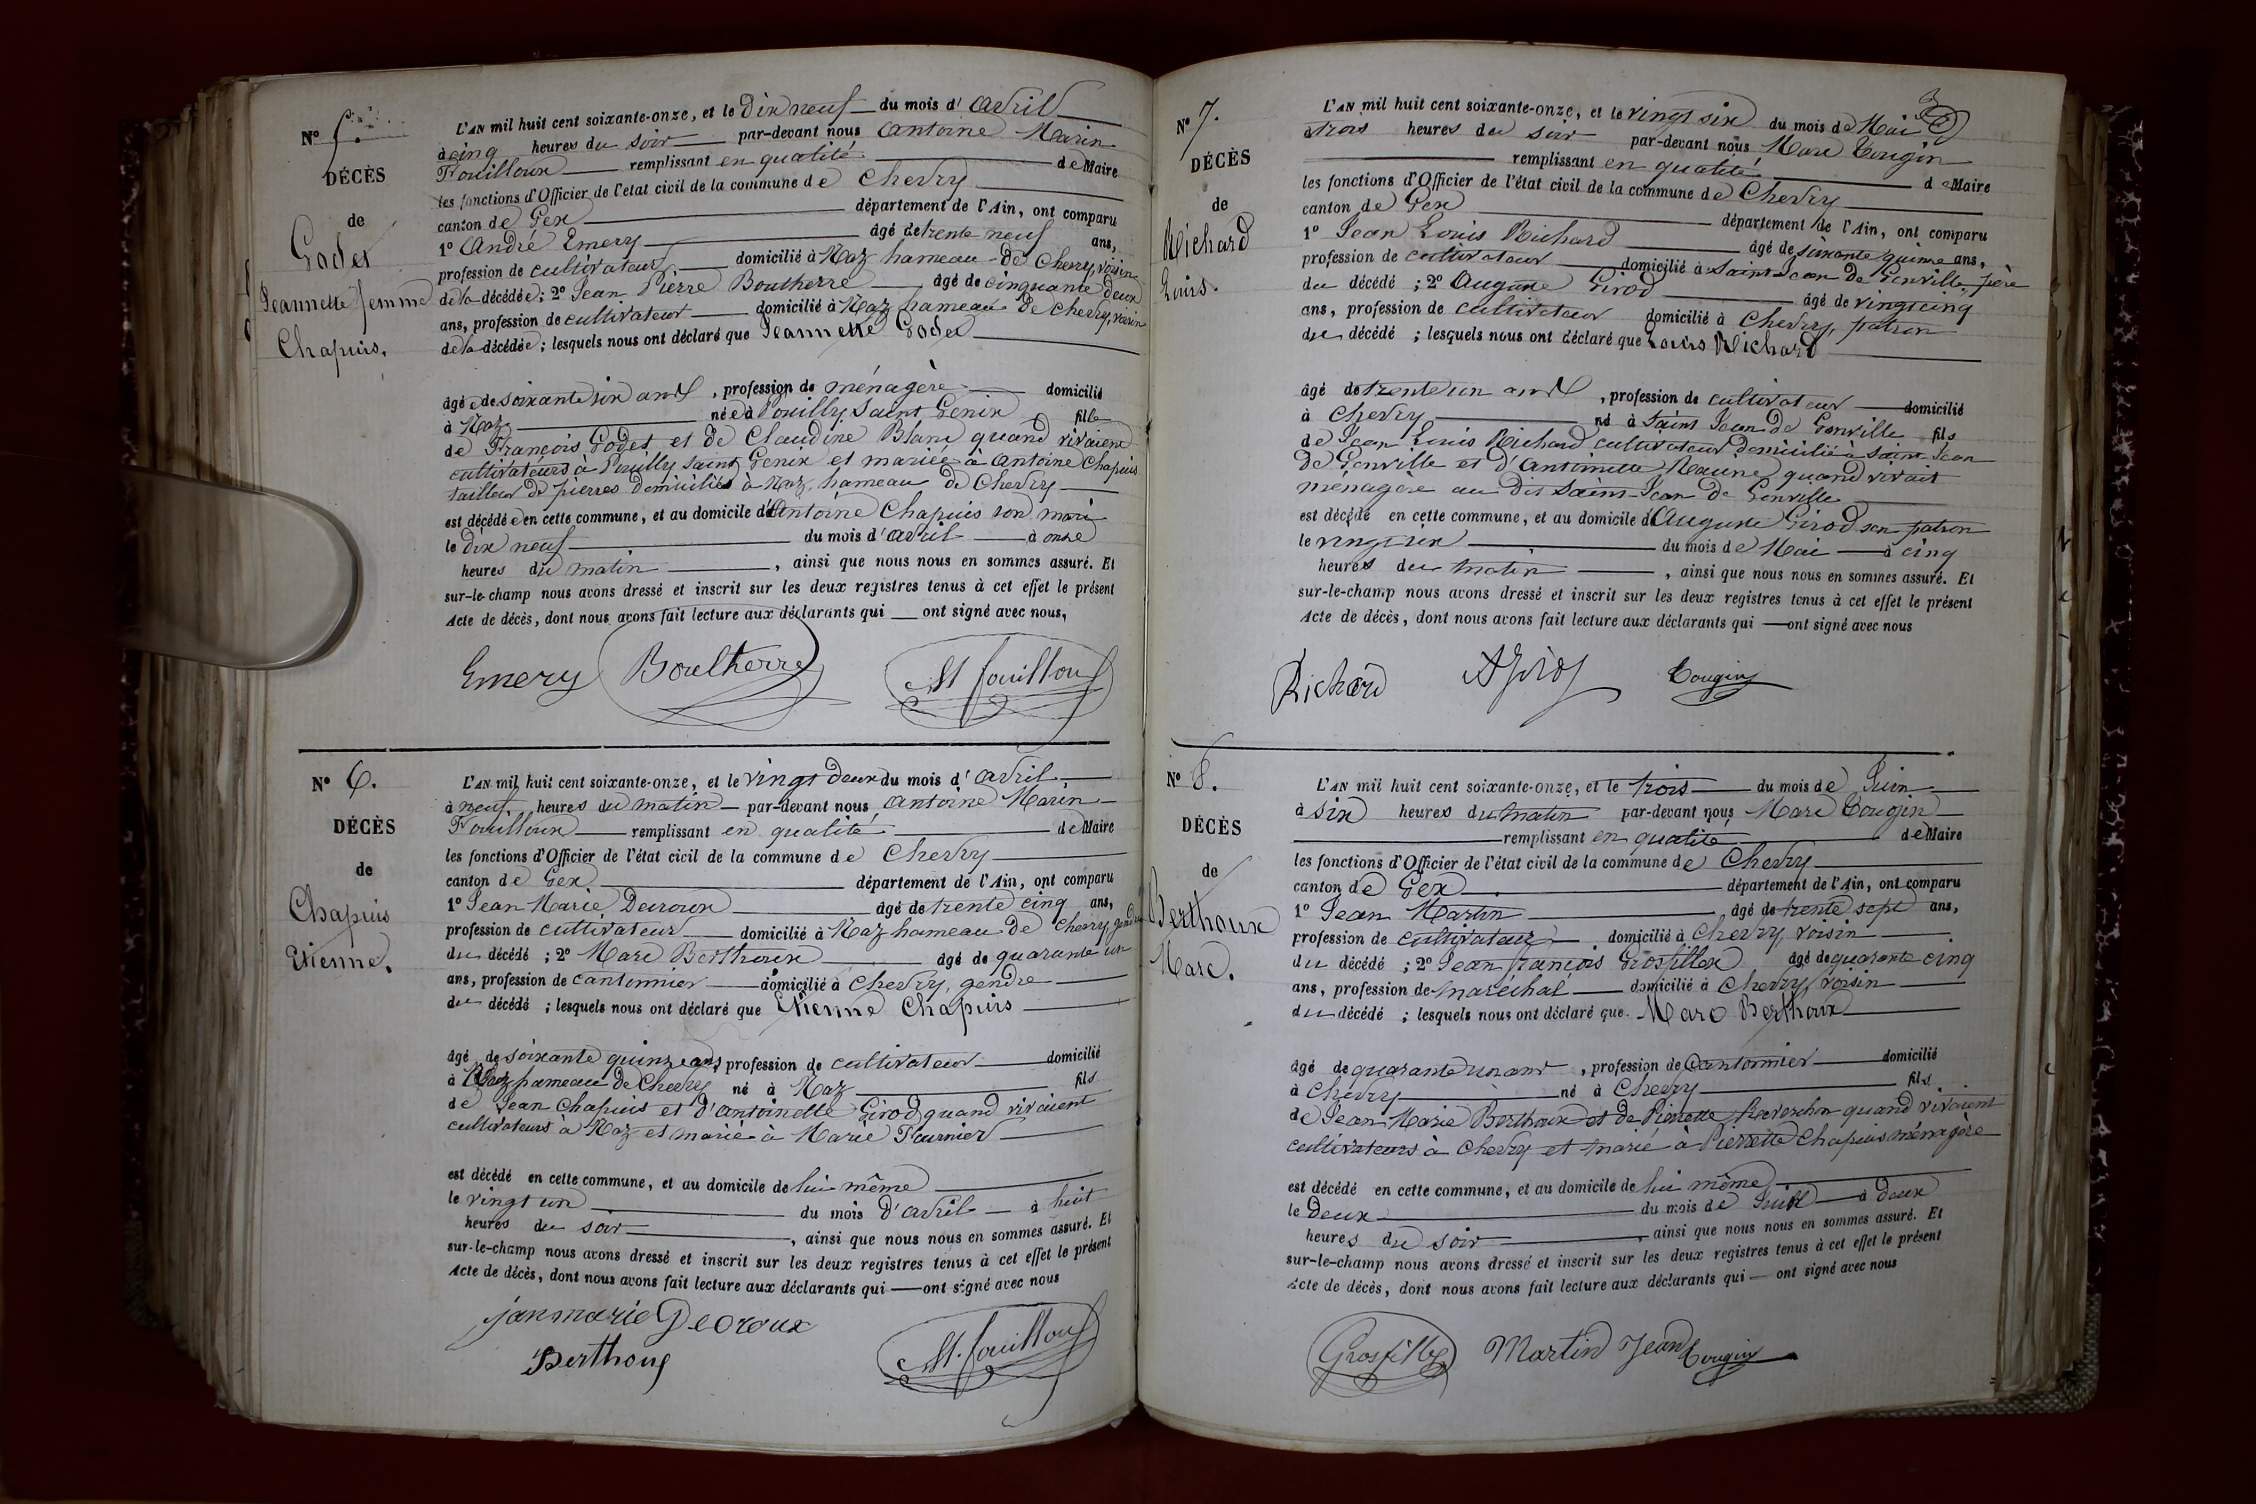 N° 5.
DÉCÈS
de
Godet
Jeannette femme
Chapuis.
L'AN mil huit cent soixante-onze, et le Dix neuf du mois d'avril
à cinq heures du soir par-devant nous Antoine Marin
Fouilloux remplissant en qualité de Maire
les fonctions d'Officier de l'état civil de la commune de Chevry
canton de Gex département de l'Ain, ont comparu
1° André Emery âgé de trente neuf ans,
profession de cultivateur domicilié à Naz hameau de Chevry, voisin
de la décédée; 2° Jean Pierre Boutherre âgé de cinquante deux
ans, profession de cultivateur domicilié à Naz hameau de Chevry, voisin
de la décédée; lesquels nous ont déclaré que Jeannette Godet
âgée de soixante six ans, profession de ménagère domicilié
à Naz née à Pouilly Saint Genix fille
de François Godet et de Claudine Blanc quand vivaient
cultivateurs à Pouilly Saint Genix et mariée à Antoine Chapuis
tailleur de pierres domiciliés à Naz, hameau de Chevry
est décédée en cette commune, et au domicile d'Antoine Chapuis son mari
le dix neuf du mois d'avril à onze
heures du matin, ainsi que nous nous en sommes assuré. Et
sur-le-champ nous avons dressé et inscrit sur les deux registres tenus à cet effet le présent
Acte de décès, dont nous avons fait lecture aux déclarants qui ont signé avec nous,
Emery Boutherre M fouilloux
N° 6.
DÉCÈS
de
Chapuis
Etienne.
L'AN mil huit cent soixante-onze, et le vingt deux du mois d'avril
à neuf heures du matin par-devant nous Antoine Marin
Fouilloux remplissant en qualité de Maire
les fonctions d'Officier de l'état civil de la commune de Chevry
canton de Gex département de l'Ain, ont comparu
1° Jean Marie Decroux âgé de trente cinq ans,
profession de cultivateur domicilié à Naz hameau de Chevry, gendre
du décédé; 2° Marc Berthoux âgé de quarante un
ans, profession de cantonnier domicilié à Chevry, gendre
du décédé; lesquels nous ont déclaré que Etienne Chapuis
âgé de soixante quinze ans, profession de cultivateur domicilié
à Naz hameau de Chevry né à Naz fils
de Jean Chapuis et d'Antoinette Girod quand vivaient
cultivateurs à Naz et marié à Marie Fournier
est décédé en cette commune, et au domicile de lui même
le vingt un du mois d'avril à huit
heures du soir, ainsi que nous nous en sommes assuré. Et
sur-le-champ nous avons dressé et inscrit sur les deux registres tenus à cet effet le présent
Acte de décès, dont nous avons fait lecture aux déclarants qui ont signé avec nous
jan marie Decroux
Berthoux M. fouilloux
N° 7.
DÉCÈS
de
Richard
Louis.
L'AN mil huit cent soixante-onze, et le vingt six du mois de Mai
à trois heures du soir par-devant nous Marc Tougin
remplissant en qualité de Maire
les fonctions d'Officier de l'état civil de la commune de Chevry
canton de Gex département de l'Ain, ont comparu
1° Jean Louis Richard âgé de soixante quinze ans,
profession de cultivateur domicilié à Saint Jean de Gonville, père
du décédé; 2° Auguste Girod âgé de vingt cinq
ans, profession de cultivateur domicilié à Chevry, patron
du décédé; lesquels nous ont déclaré que Louis Richard
âgé de trente un ans, profession de cultivateur domicilié
à Chevry né à Saint Jean de Gonville fils
de Jean Louis Richard cultivateur domicilié à Saint Jean
de Gonville et d'Antoinette quand vivait
ménagère au dit Saint Jean de Gonville
est décédé en cette commune, et au domicile d'Auguste Girod son patron
le vingt six du mois de Mai à cinq
heures du matin, ainsi que nous nous en sommes assuré. Et
sur-le-champ nous avons dressé et inscrit sur les deux registres tenus à cet effet le présent
Acte de décès, dont nous avons fait lecture aux déclarants qui ont signé avec nous
Richard A Girod Tougin
N° 8.
DÉCÈS
de
Berthoux
Marc.
L'AN mil huit cent soixante-onze, et le trois du mois de Juin
à six heures du matin par-devant nous Marc Tougin
remplissant en qualité de Maire
les fonctions d'Officier de l'état civil de la commune de Chevry
canton de Gex département de l'Ain, ont comparu
1° Jean Martin âgé de trente sept ans,
profession de cultivateur domicilié à Chevry, voisin
du décédé; 2° Jean François Grosfillex âgé de quarante cinq
ans, profession de maréchal domicilié à Chevry, voisin
du décédé; lesquels nous ont déclaré que Marc Berthoux
âgé de quarante un ans, profession de cantonnier domicilié
à Chevry né à Chevry fils
de Jean Marie Berthoux et de Pierrette Reverchon quand vivaient
cultivateurs à Chevry et marié à Pierrette Chapuis ménagère
est décédé en cette commune, et au domicile de lui même
le deux du mois de Juin à deux
heures du soir, ainsi que nous nous en sommes assuré. Et
sur-le-champ nous avons dressé et inscrit sur les deux registres tenus à cet effet le présent
Acte de décès, dont nous avons fait lecture aux déclarants qui ont signé avec nous
Grosfillex Martin Jean Tougin